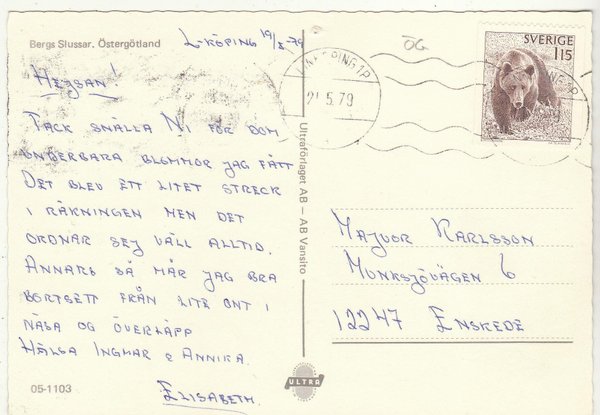 Bergs Slussar. Östergötland
L-köping 19/5-79
ÖG
SVERIGE
115
LINKÖPING 1P
21.5.79
HEJSAN!
TACK SNÄLLA NI FÖR DOM
UNDERBARA BLOMMOR JAG FÅTT
DET BLEV ETT LITET STRECK
I RÄKNINGEN MEN DET
ORDNAR SEJ VÄLL ALLTID.
ANNARS SÅ MÅR JAG BRA
BORTSETT FRÅN LITE ONT I
NÄSA OG ÖVERLÄPP
HÄLSA INGMAR & ANNIKA.
ELISABETH.
Ultraförlaget AB – AB Vansito
MAJVOR KARLSSON
MUNKSJÖVÄGEN 6
12247 ENSKEDE
05-1103
ULTRA